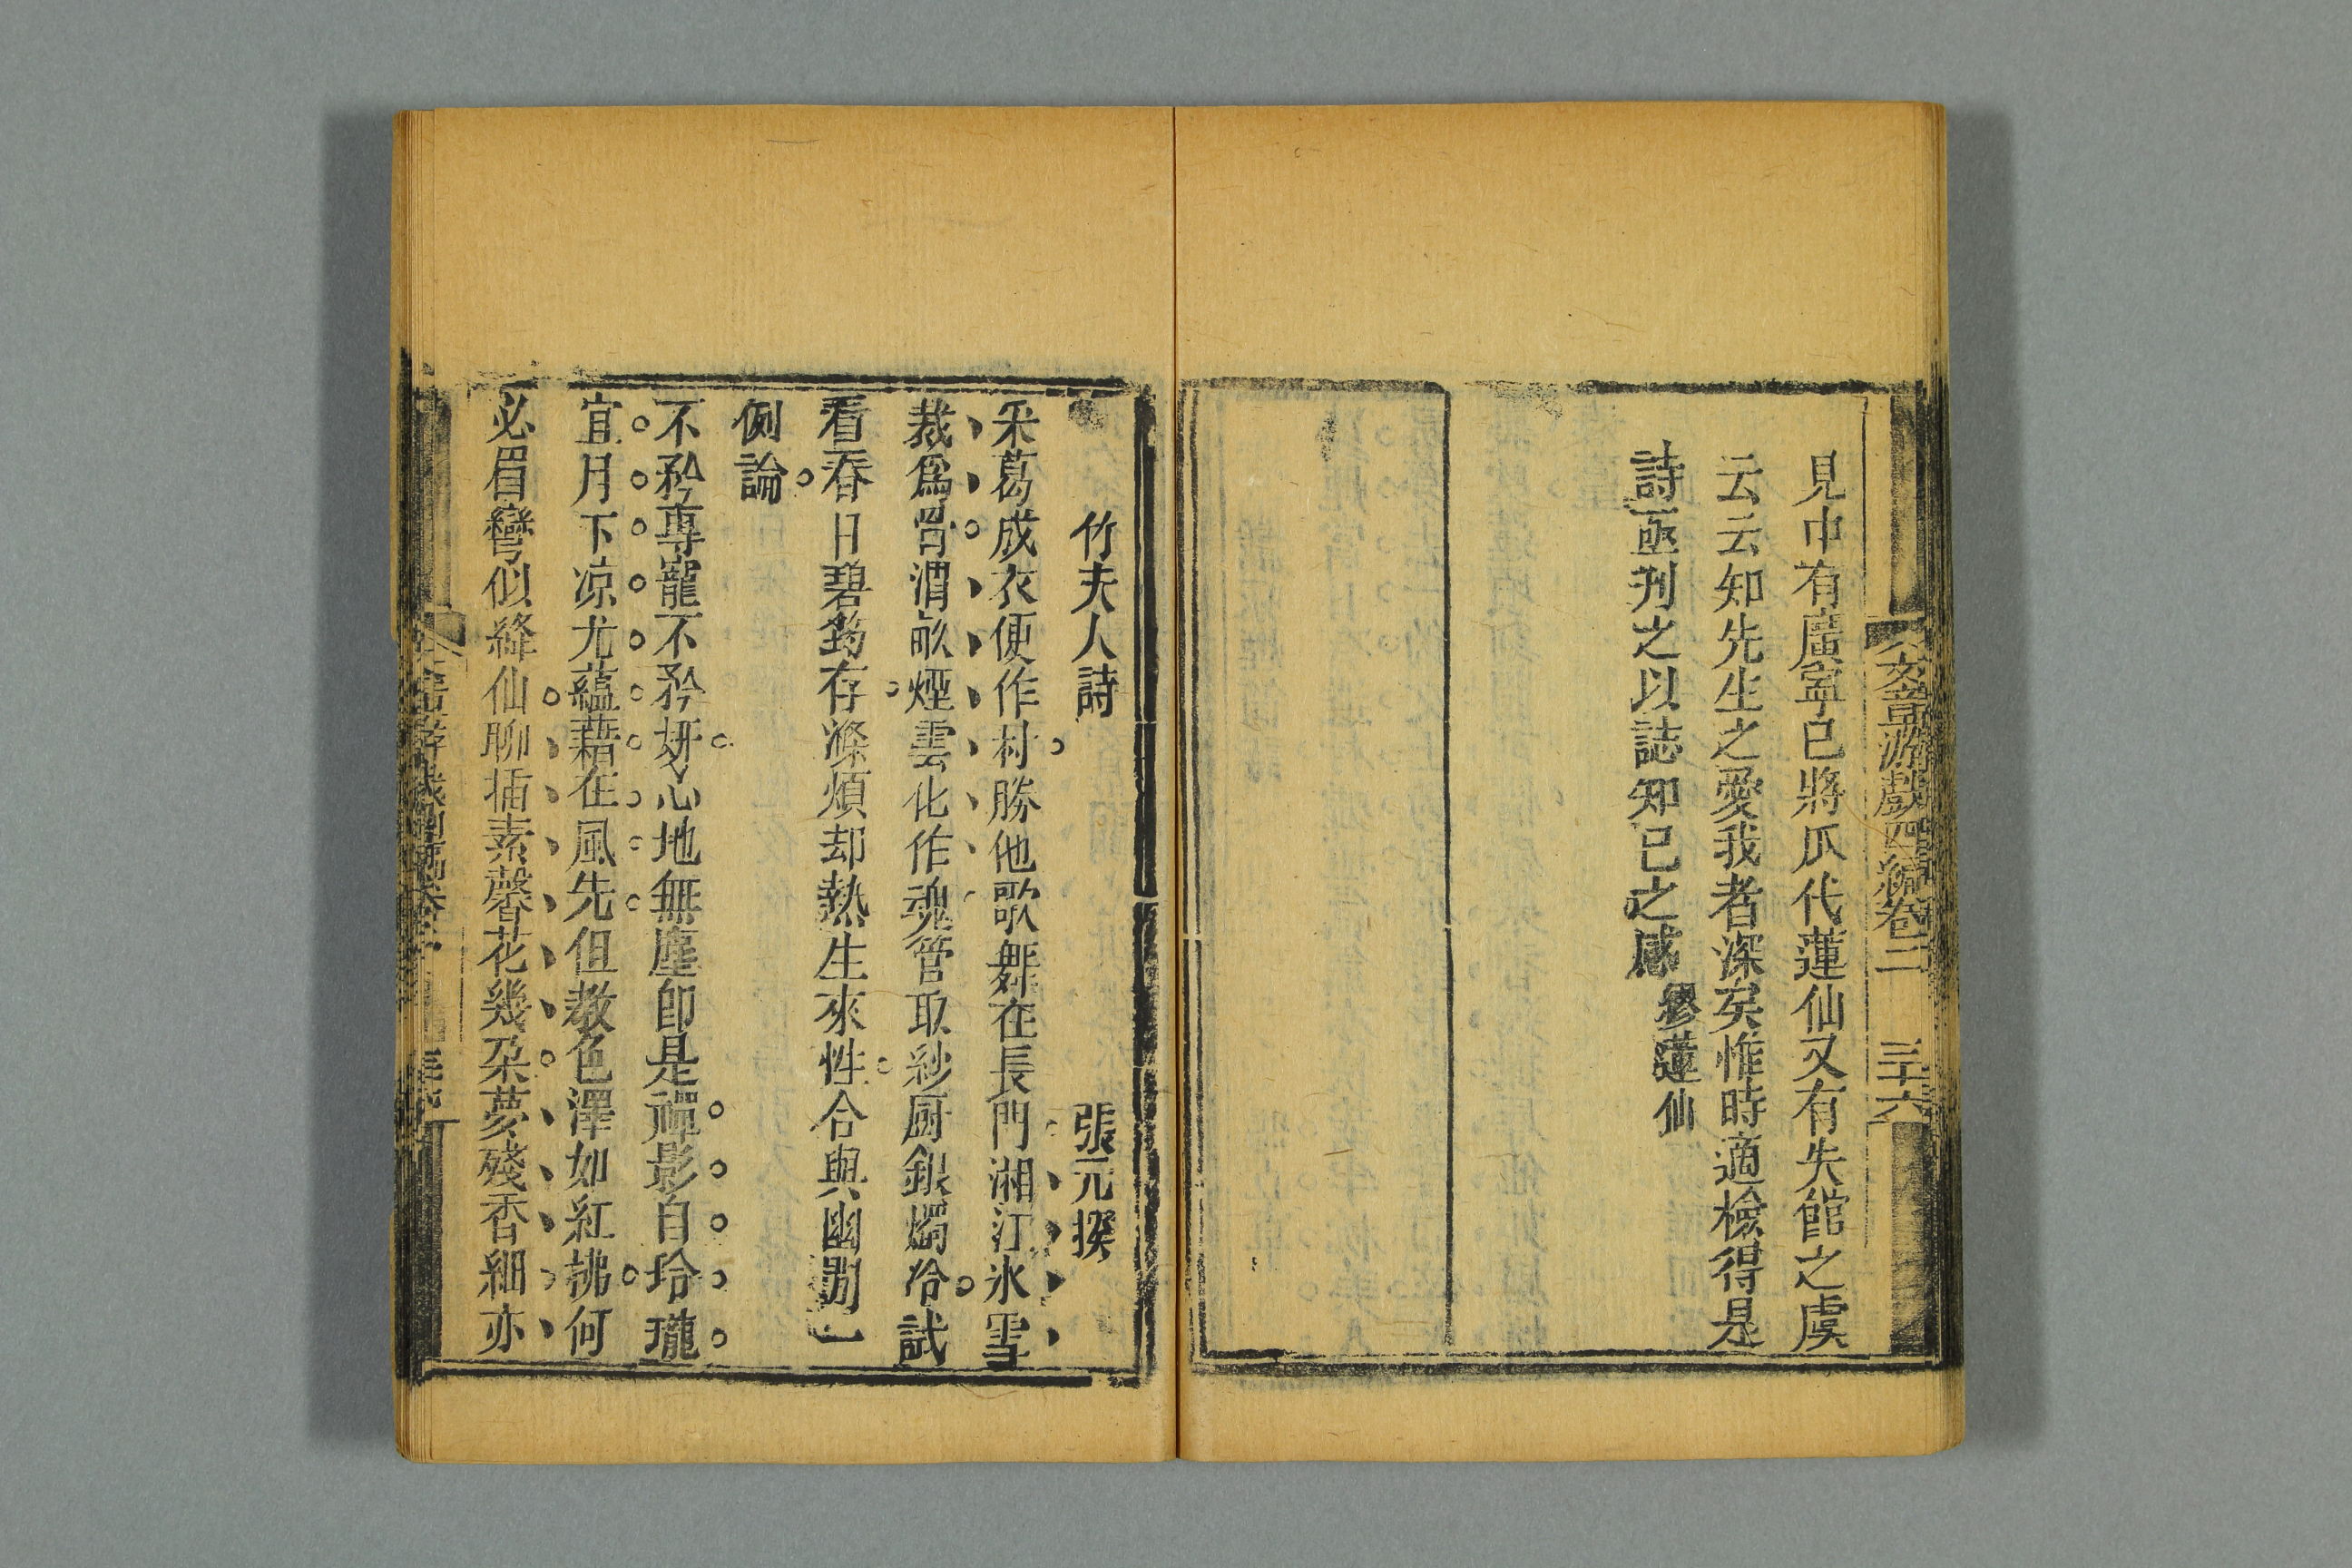 文章游戲四編卷二 三十六
見巾有廣寧已將瓜代蓮仙又有失館之虞
云云知先生之愛我者深矣惟時適檢得是
詩亟刊之以誌知已之感 繆蓮仙
竹夫人詩 張元撰
采葛成衣便作村勝他歌舞在長門湘汀氷雪
裁爲骨渭畝煙雲化作魂管取紗厨銀燭冷試
看春日碧筠存滌煩却熱生來性合與幽閒一
例論
不矜專寵不矜妍心地無塵卽是禪影自玲瓏
宜月下凉尤蘊藉在風先但教色澤如紅拂何
必眉彎似絳仙聊插素馨花幾朶夢殘香細亦